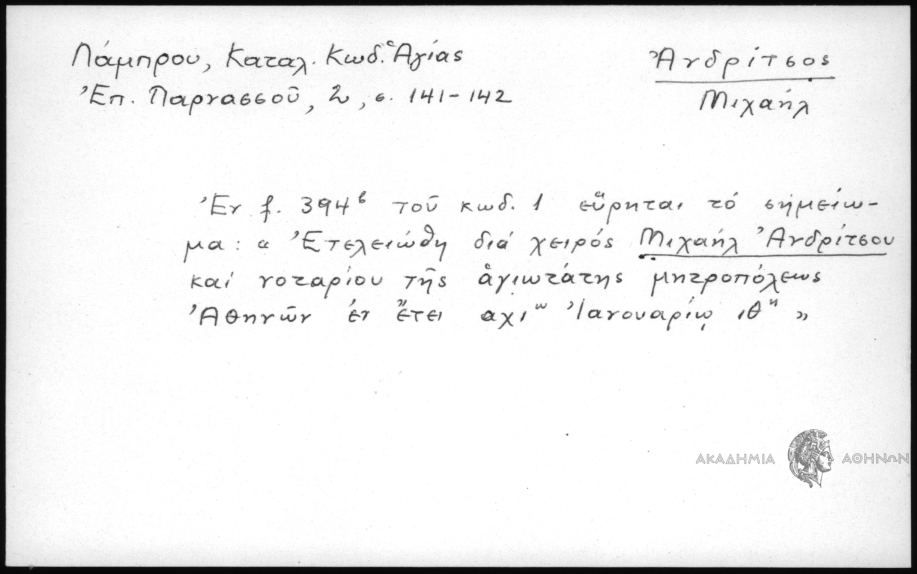 Λάμπρου, Καταλ. Κωδ. Ἁγίας
Ἐπ. Παρνασσοῦ, 2, σ. 141-142
Ἀνδρίτσος
Μιχαήλ
Ἐν f. 394β τοῦ κωδ. 1 εὕρηται τό σημείω-
μα: « Ἐτελειώθη διά χειρός Μιχαήλ Ἀνδρίτσου
καί νοταρίου τῆς ἁγιωτάτης μητροπόλεως
Ἀθηνῶν ἐν ἔτει αχιω Ἰανουαρίῳ ιθη »
ΑΚΑΔΗΜΙΑ ΑΘΗΝΩΝ